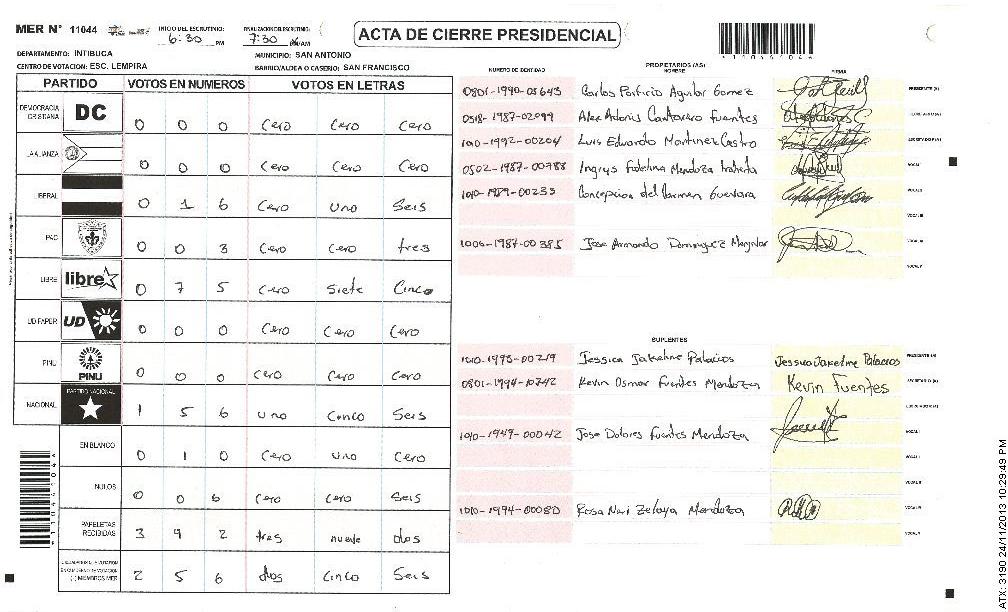 MER N° 11044
INICIO DEL ESCRUTINIO:
6:30 PM
FINALIZACION DEL ESCRUTINIO:
7:30 PM/AM
ACTA DE CIERRE PRESIDENCIAL
DEPARTAMENTO: INTIBUCA
MUNICIPIO: SAN ANTONIO
CENTRO DE VOTACION: ESC. LEMPIRA
BARRIO/ALDEA O CASERIO: SAN FRANCISCO
PARTIDO VOTOS EN NUMEROS VOTOS EN LETRAS
DEMOCRACIA CRISTIANA DC 0 0 0 Cero Cero Cero
LA ALIANZA 0 0 0 Cero Cero Cero
LIBERAL 0 1 6 Cero Uno Seis
PAC 0 0 3 Cero Cero tres
LIBRE libre 0 7 5 Cero Siete Cinco
UD FAPER UD 0 0 0 Cero Cero Cero
PINU PINU 0 0 0 Cero Cero Cero
NACIONAL PARTIDO NACIONAL 1 5 6 uno Cinco Seis
EN BLANCO 0 1 0 Cero uno Cero
NULOS 0 0 6 Cero Cero Seis
PAPELETAS RECIBIDAS 3 9 2 tres nueve dos
2 5 6 dos Cinco Seis
PROPIETARIOS (AS)
NUMERO DE IDENTIDAD NOMBRE FIRMA
0801-1990-05643 Carlos Porfirio Aguilar Gomez PRESIDENTE (A)
0518-1987-02099 Alex Antonio Cantarero Fuentes
1010-1992-00204 Luis Eduardo Martinez Castro
0502-1987-00788 Ingrys Fidelina Mendoza VOCAL I
1010-1989-00233 Concepcion del Carmen Guevara
1006-1987-00385 Jose Armando Dominguez
SUPLENTES
1010-1995-00219 Jessica Jakeline Palacios Jessica Jakeline Palacios PRESIDENTE (A)
0801-1994-10742 Kevin Osmar Fuentes Mendoza Kevin Fuentes SECRETARIO (A)
1010-1949-00042 Jose Dolores Fuentes Mendoza VOCAL I
1010-1994-00080 Rosa Neri Zelaya Mendoza
ATX: 3190 24/11/2013 10:29:49 PM